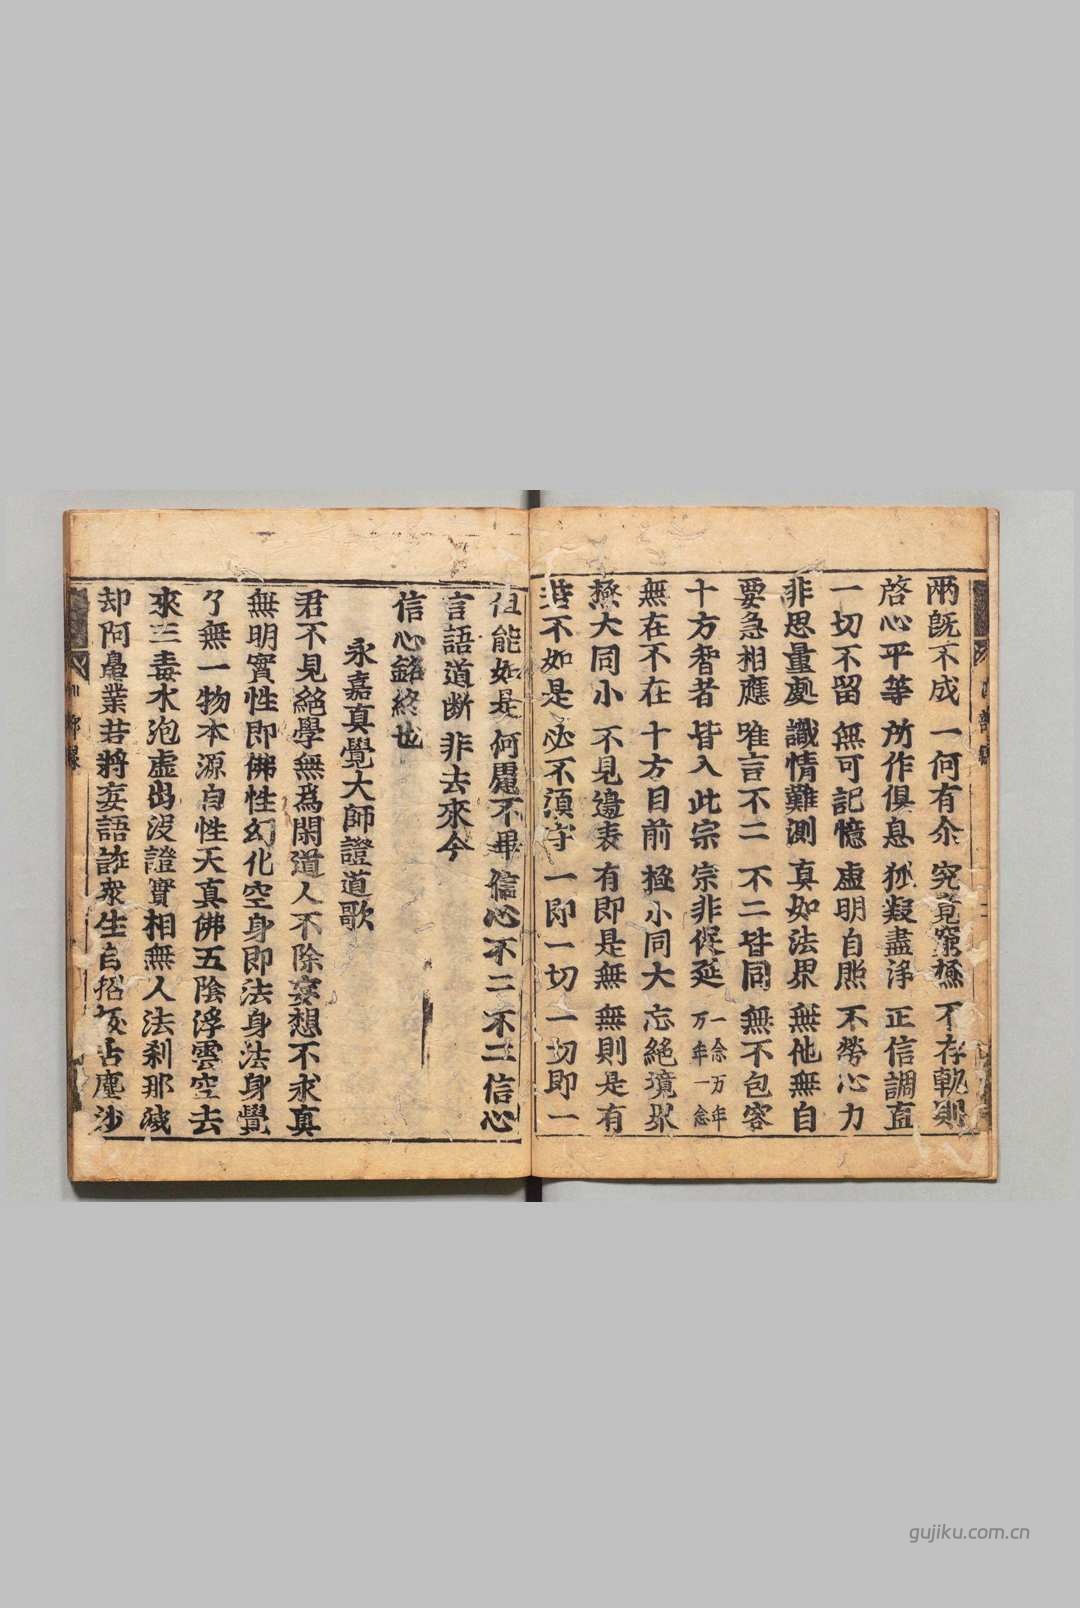 兩既不成 一何有尒 究竟窮極 不存軌則
啓心平等 所作俱息 狐疑盡淨 正信調直
一切不留 無可記憶 虛明自照 不勞心力
非思量處 識情難測 真如法界 無他無自
要急相應 唯言不二 不二皆同 無不包容
十方智者 皆入此宗 宗非促延 一念万年 万年一念
無在不在 十方目前 極小同大 忘絕境界
極大同小 不見邊表 有即是無 無則是有
若不如是 必不須守 一即一切 一切即一
但能如是 何慮不畢 信心不二 不二信心
言語道断 非去來今
信心銘終也
永嘉真覺大師證道歌
君不見絕學無爲閑道人不除妄想不求真
無明實性即佛性幻化空身即法身法身覺
了無一物本源自性天真佛五陰浮雲空去
來三毒水泡虛出没證實相無人法刹那滅
却阿鼻業若將妄語誑衆生自招拔舌塵沙
gujiku.com.cn